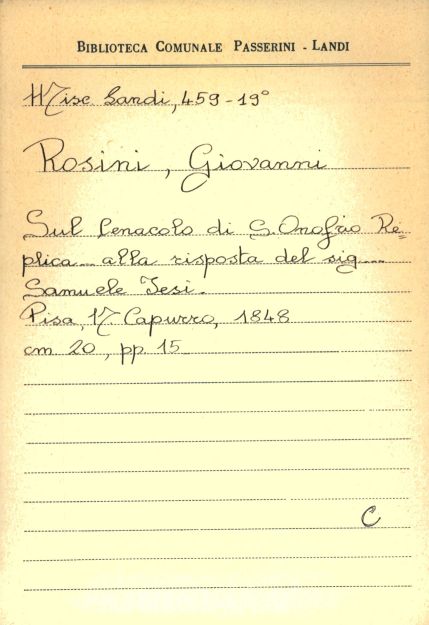 BIBLIOTECA COMUNALE PASSERINI - LANDI
Misc Landi, 459-19°
Rosini, Giovanni
Sul Cenacolo di S. Onofrio Re=
plica... alla risposta del sig....
Samuele Jesi.
Pisa, N Capurro, 1848
cm 20, pp. 15
C